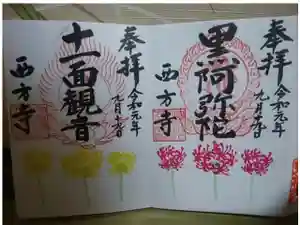 奉拝
令和元年
九月十六日
黒阿弥陀
西方寺
奉拝
令和元年
九月十六日
十一面観音
西方寺